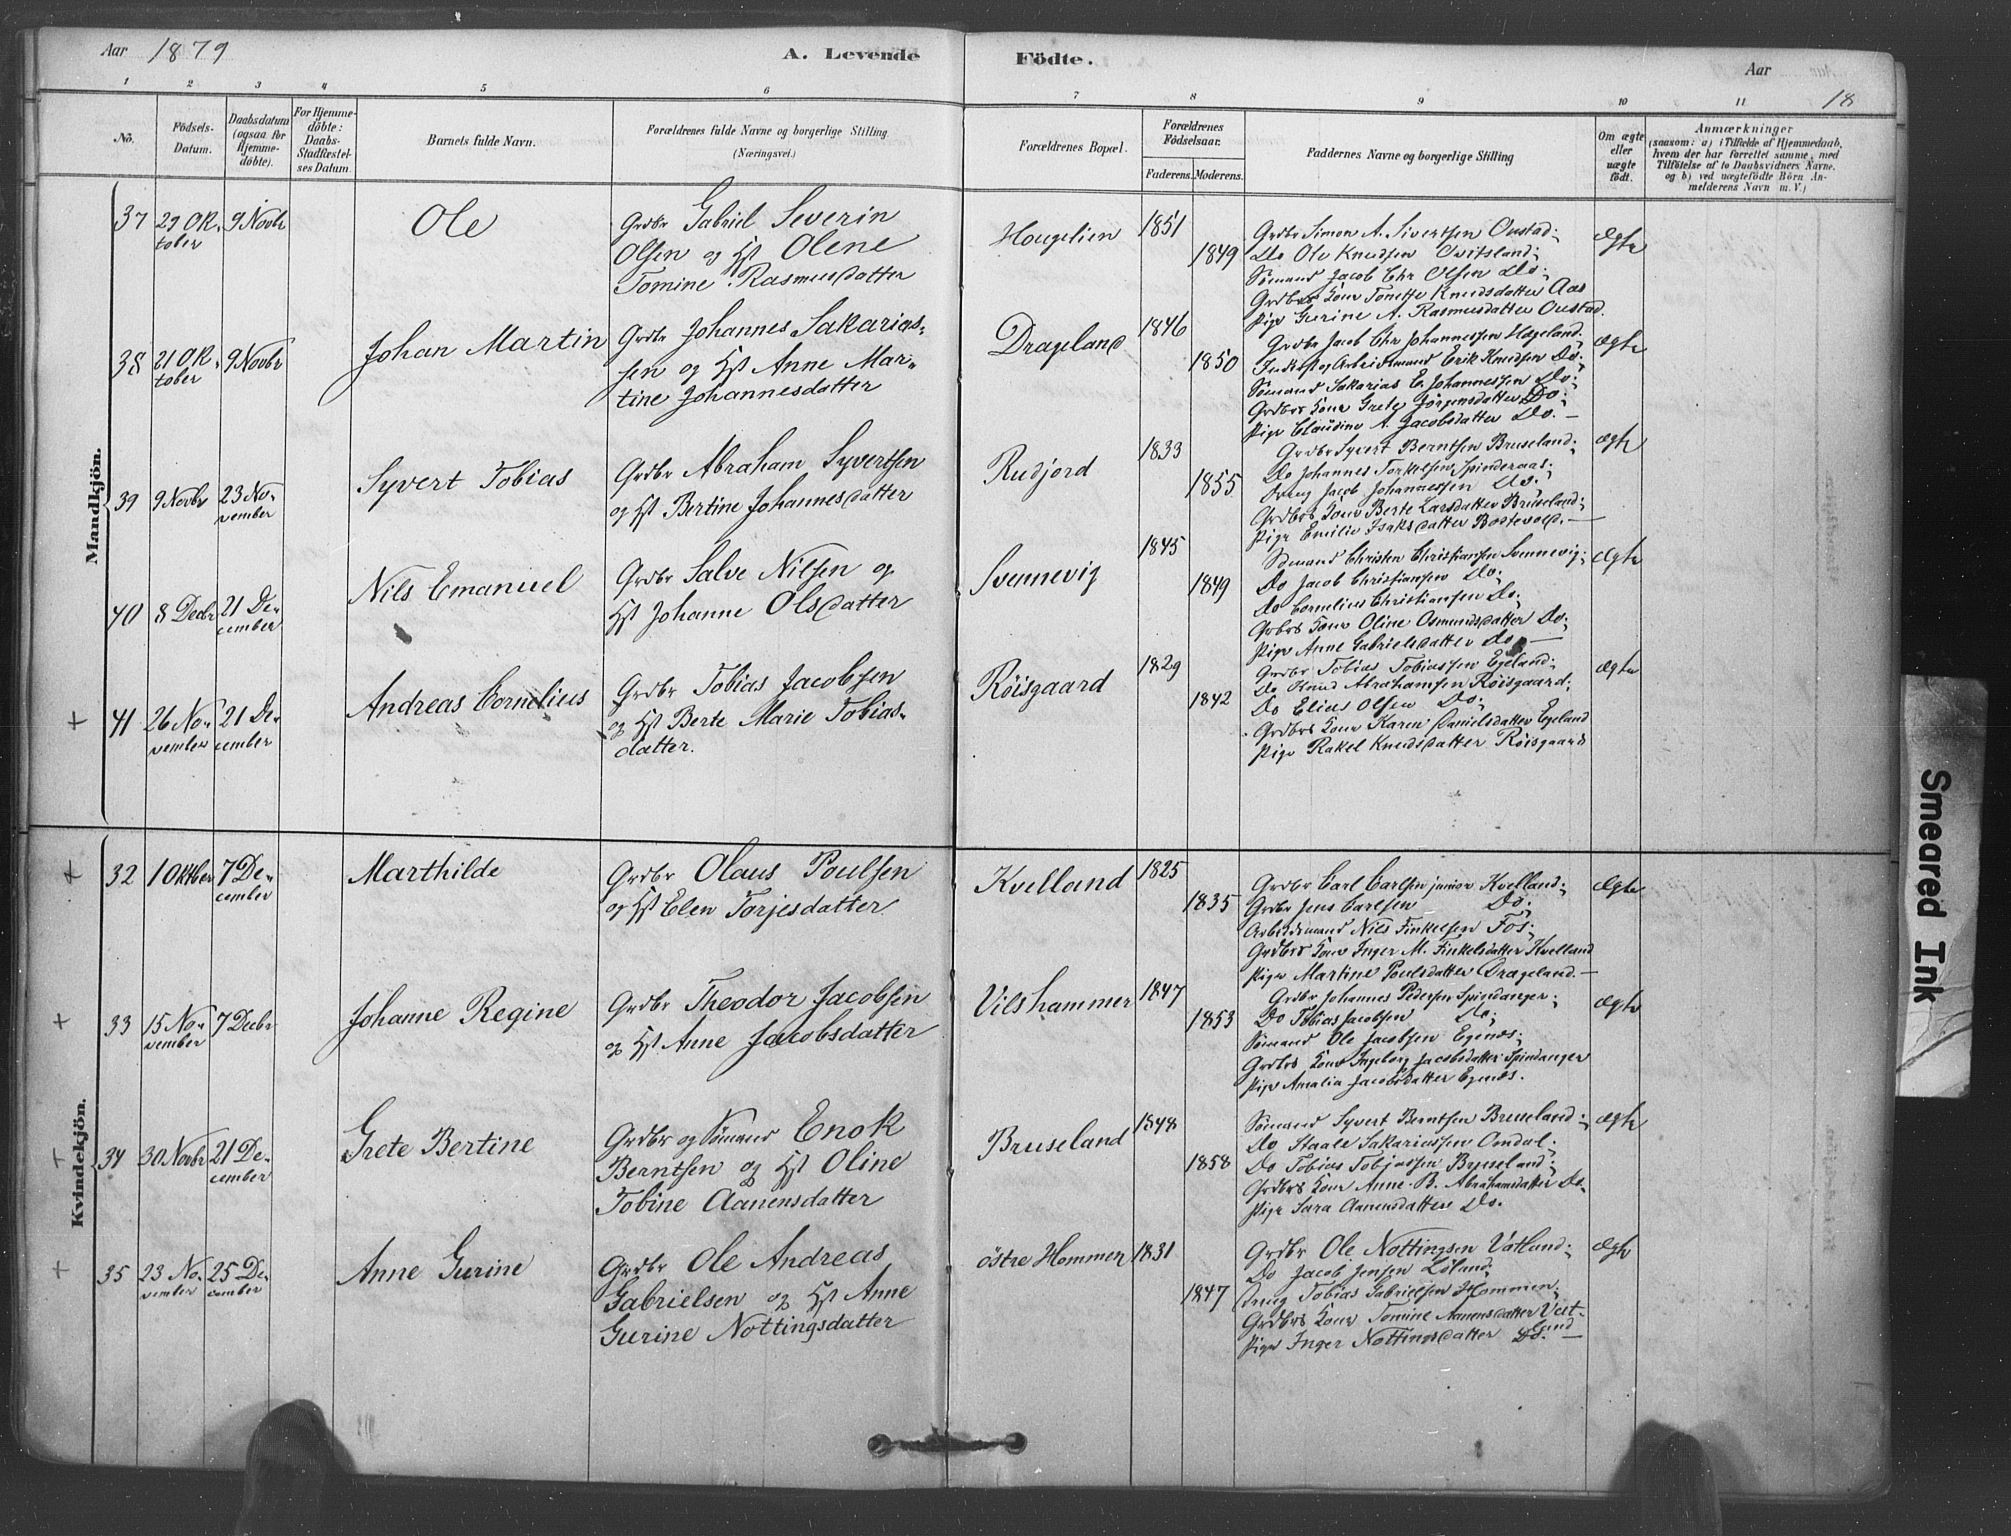 Aar 1879 A. Levende Födte. Aar 18
1 2 3 4 5 6 7 8 9 10 11
No. Födsels-Datum. Daabsdatum (ogsaa for Hjemmedöbte). For Hjemmedöbte: Daabs-Stadfæstelses Datum Barnets fulde Navn. Forældrenes fulde Navne og borgerlige Stilling. (Næringsvei.) Forældrenes Bopæl. Forældrenes Födselsaar. Faderens. Moderens. Faddernes Navne og borgerlige Stilling Om ægte eller uægte födt. Anmærkninger (saasom: a) i Tilfælde af Hjemmedaab, hvem der har forrettet samme, med Tilföielse af to Daabsvidners Navne. og b) ved uægtefödte Börn Anmelderens Navn m. V.)
Mandkjön.
37 29 Oktober 9 Novbr Ole
Grdbr Gabriel Severin
Olsen og Hst Olene
Tomine Rasmusdatter
Hougelien 1851 1849
Grdbr Simon A. Sivertsen Oustad;
Do Ole Knudsen Qvitsland;
Sömand Jacob Chr Olsen Do;
Grdbrs Kone Tonette Knudsdatter Aas
Pige Gurine A. Rasmusdatter Oustad.
Ægte
38 21 Oktober 9 Novbr Johan Martin
Grdbr Johannes Sakarias-
sen og Hst Anne Mar-
tine Johannesdatter
Drageland 1846 1850
Grdbr Jacob Chr Johannessen Hægeland.
Indkst og Arbeidsmand Erik Knudsen Do;
Sömand Sakarias E. Johannessen Do;
Grdbrs Kone Grete Jörgensdatter Do;
Pige Claudine A. Jacobsdatter Do. —
Ægte
39 9 Novbr 23 November Syvert Tobias
Grdbr Abraham Syvertsen
og Hst Bertine Johannesdatter
Rudjord 1833 1855
Grdbr Syvert Berntsen Bruseland;
Do Johannes Torkelsen Spinderaas;
Ung Jacob Johannessen Do;
Grdbrs Kone Berte Larsdatter Bruseland;
Pige Emilie Isaksdatter Bostevold. —
Ægte
40 8 Decbr 21 December Nils Emanuel
Grdbr Salve Nilsen og
Hst Johanne Olsdatter
Svennevig 1845 1849
Sömand Christen Christiansen Svennevig;
Do Jacob Christiansen Do;
Do Cornelius Christiansen Do;
Grdbrs Kone Oline Osmundsdatter Do;
Pige Anne Gabrielsdatter Do —
Ægte
+ 41 26 November 21 December Andreas Cornelius
Grdbr Tobias Jacobsen
og Hst Berte Marie Tobias-
datter.
Röisgaard 1829 1842
Grdbr Tobias Tobiassen Egeland;
Do Knud Abrahamsen Röisgaard;
Do Elias Olsen Do;
Grdbrs Kone Karen Danielsdatter Egeland
Pige Rakel Knudsdatter Röisgaard
Ægte
Kvindekjön.
+ 32 1 Oktber 7 December Marthilde
Grdbr Olaus Poulsen
og Hst Elen Torjesdatter
Kvelland 1825 1835
Grdbr Carl Carlsen junior Kvelland;
Grdbr Jens Carlsen Do;
Arbeidsmand Nils Finkelsen Fos;
Grdbrs Kone Inger M. Finkelsdatter Kvelland
Pige Martine Poulsdatter Drageland. —
Ægte
+ 33 15 November 7 Decbr Johanne Regine
Grdbr Theodor Jacobsen
og Hst Anne Jacobsdatter
Vilshammer 1847 1853
Grdbr Johannes Pedersen Spindanger;
Do Tobias Jacobsen Do;
Sömand Ole Jacobsen Egenes;
Grdbrs Kone Ingeborg Jacobsdatter Spindanger
Pige Amalia Jacobsdatter Egenes.
Ægte
+ 34 30 Novbr 21 December Grete Bertine
Grdbr og Sömand Enok
Berntsen og Hst Oline
Tobine Aanensdatter
Bruseland 1848 1858
Sömand Syvert Berntsen Bruseland;
Do Staale Sakariassen Omdal;
Do Tobias Tobiassen Bruseland;
Grdbrs Kone Anne B. Abrahamsdatter Do
Pige Sara Aanensdatter Do.
Ægte
+ 35 23 November 25 December Anne Gurine
Grdbr Ole Andreas
Gabrielsen og Hst Anne
Gurine Nottingsdatter
östre Hommen 1831 1847
Grdbr Ole Nottingsen Vatland;
Do Jacob Jensen Löland;
Ung Tobias Gabrielsen Hommen;
Grdbrs Kone Tomine Aanensdatter Vat-
land
Pige Inger Nottingsdatter Do. —
Ægte
Smeared Ink